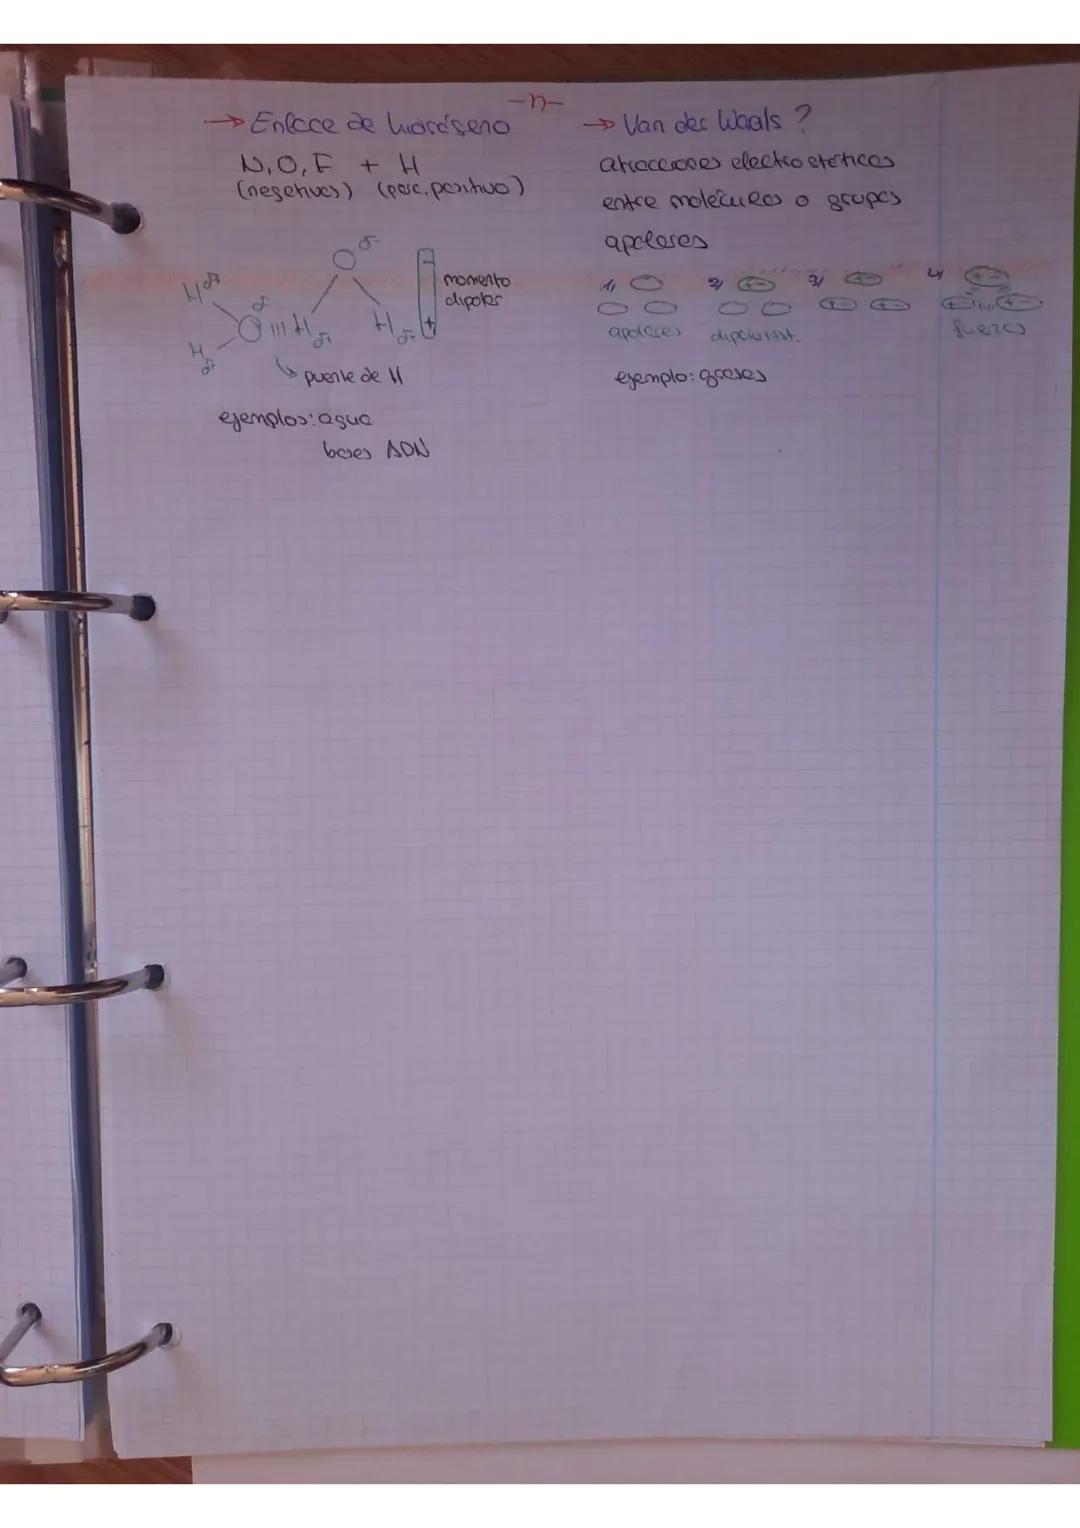 -n-
→ Enlace de hidrógeno
N, O, F + H
(negativos) (parc. positivo)
Hδ+
Oδ-
Hδ+
Oδ-
III Hδ+
Hδ+
-
+
momento
dipolar
↳ puente de H
ejemplos: agua
bases ADN
→ Van der Waals ?
atracciones electrostáticas
entre moléculas o grupos
apolares
1) 2) 3) 4)
apolares dipolo inst. fuerzas
ejemplo: grasas